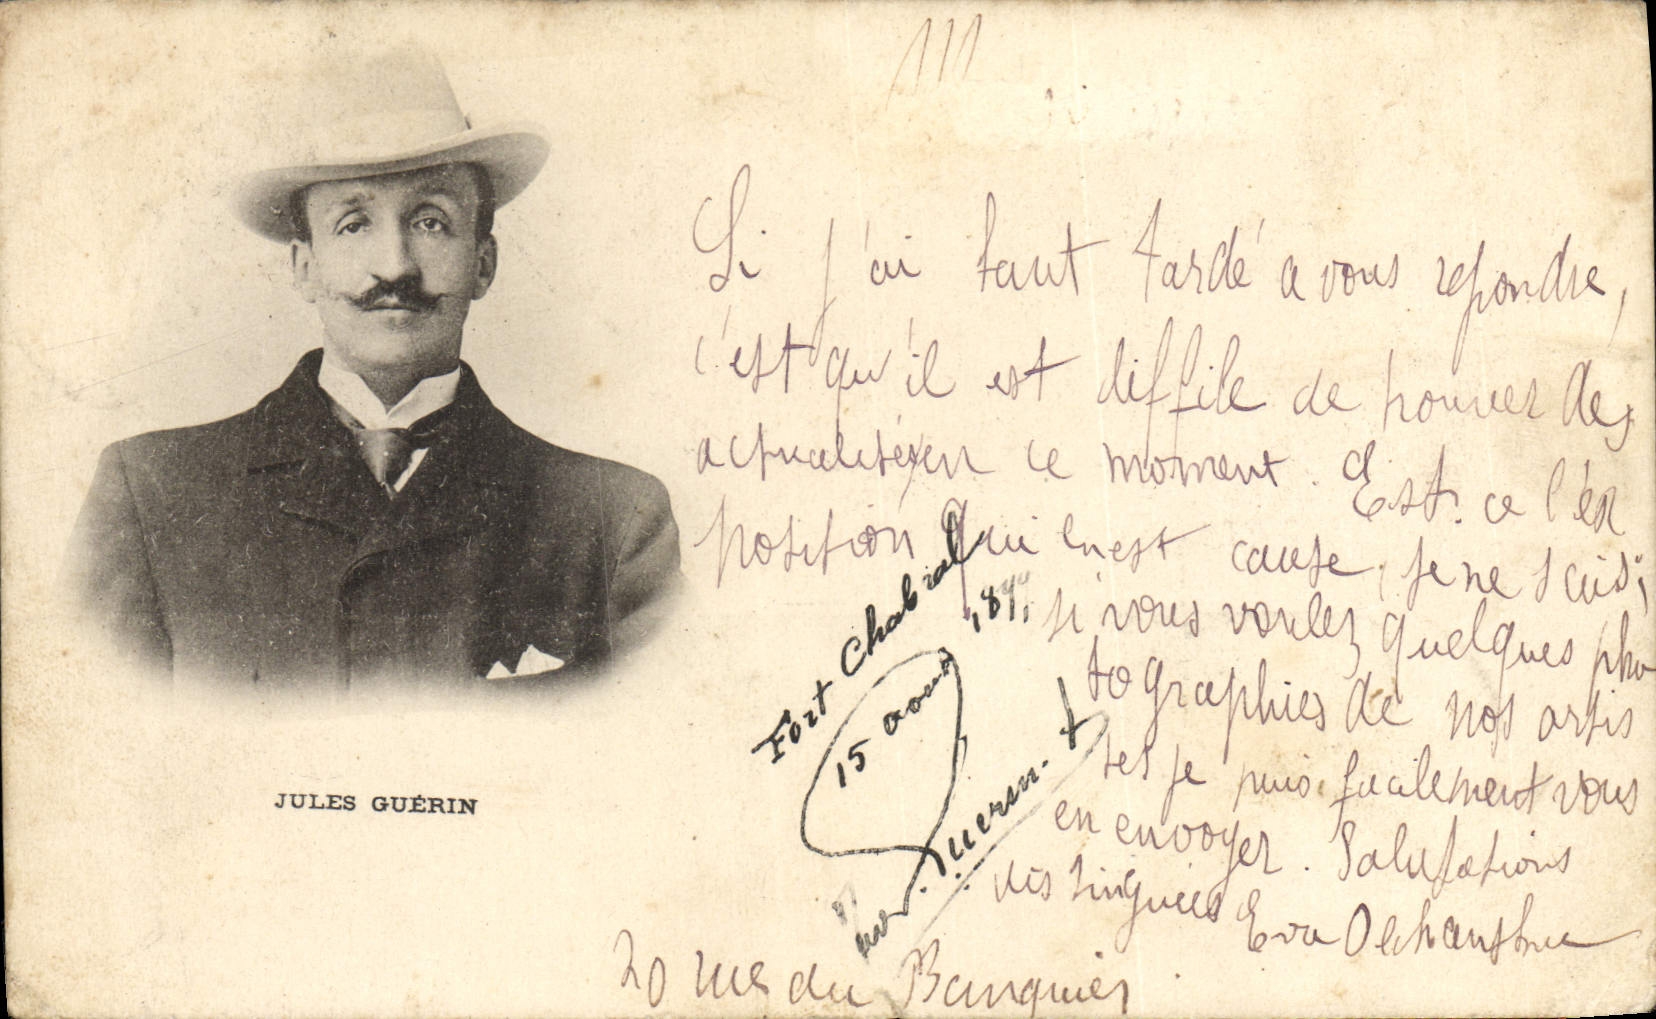 111
Si j'ai tant tardé a vous repondre,
c'est qu'il est diffile de trouver des
actualités en ce moment. Est. ce l'ex
position qui en est cause, je ne sais;
si vous voulez quelques pho
tographies de nos artis
tes je puis facilement vous
en envoyer. Salutations
distinguées Eva
20 rue du Banquier
Fort Chabrol
15 aout 1899
JULES GUÉRIN